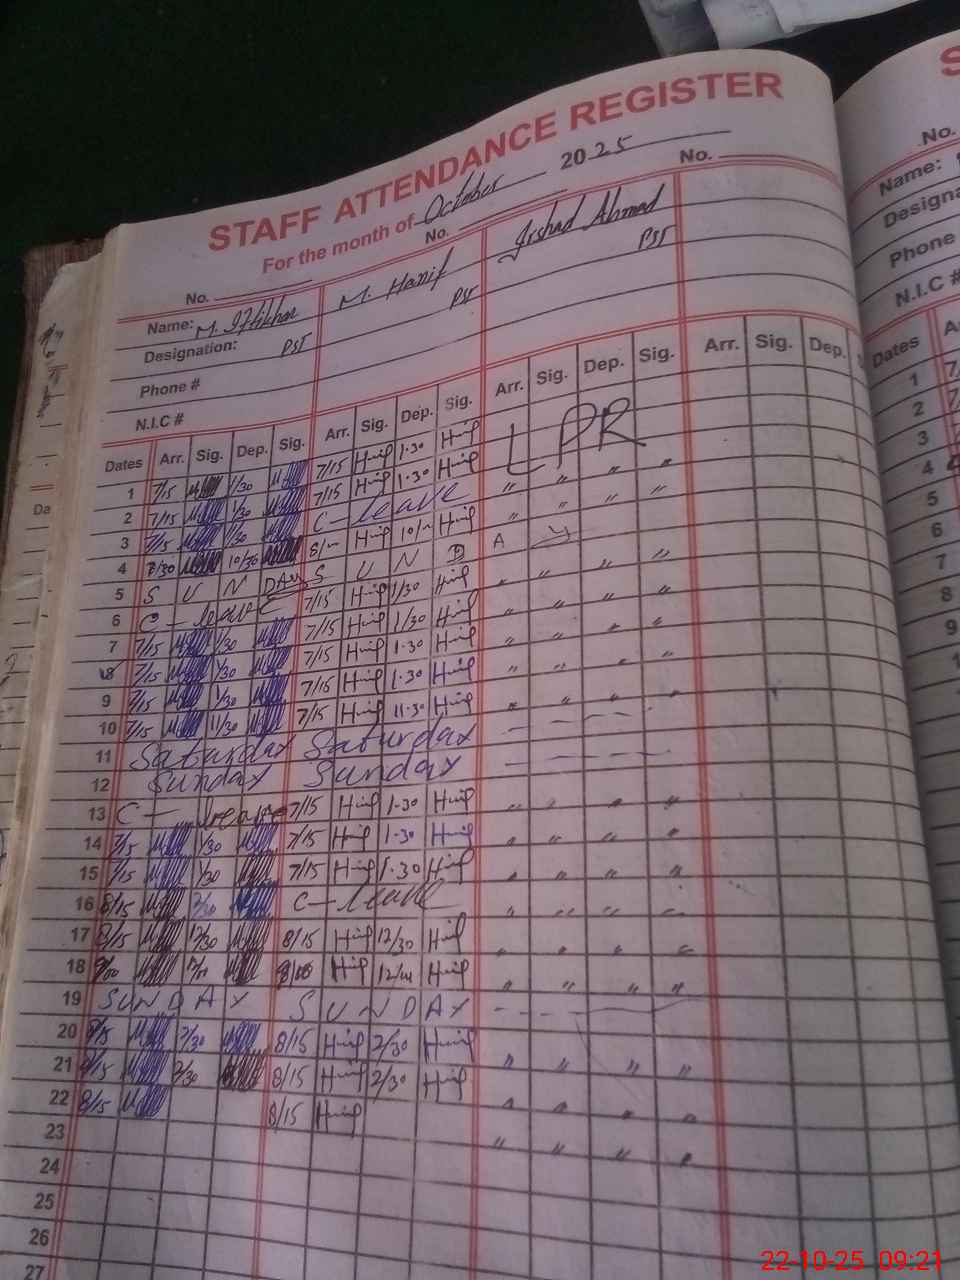 STAFF ATTENDANCE REGISTER
For the month of October 2025
No. No. No.
Name: M. Iftikhar M. Hanif Irshad Ahmad
Designation: PST PST PST
Phone #
N.I.C #
Dates Arr. Sig. Dep. Sig. Arr. Sig. Dep. Sig. Arr. Sig. Dep. Sig. Arr. Sig. Dep.
1 7/15 1/30 7/15 Hanif 1.30 Hanif LPR
2 7/15 1/30 7/15 Hanif 1.30 Hanif " " " "
3 7/15 1/30 C-leave " " " "
4 8/30 10/30 8/- Hanif 10/- Hanif
5 SUNDAY SUNDAY
6 C-leave 7/15 Hanif 1/30 Hanif " " " "
7 7/15 1/30 7/15 Hanif 1/30 Hanif " " " "
8 7/15 1/30 7/15 Hanif 1.30 Hanif " " " "
9 7/15 1/30 7/15 Hanif 1.30 Hanif " " " "
10 7/15 11/30 7/15 Hanif 11.30 Hanif " " " "
11 Saturday Saturday
12 Sunday Sunday
13 C-leave 7/15 Hanif 1.30 Hanif " " " "
14 7/15 1/30 7/15 Hanif 1.30 Hanif " " " "
15 7/15 1/30 7/15 Hanif 1.30 Hanif " " " "
16 8/15 2/30 C-leave " " " "
17 8/15 12/30 8/15 Hanif 12/30 Hanif " " " "
18 9/00 12/00 Hanif 12/00 Hanif " " " "
19 SUNDAY SUNDAY
20 8/15 2/30 8/15 Hanif 2/30 Hanif " " " "
21 8/15 2/30 8/15 Hanif 2/30 Hanif " " " "
22 8/15 8/15 Hanif " " " "
23
24
25
26
27
S
No.
Name:
Designa
Phone
N.I.C #
Dates A
1 7/
2 7/
3
4
5
6
7
8
9
Da
22-10-25 09:21